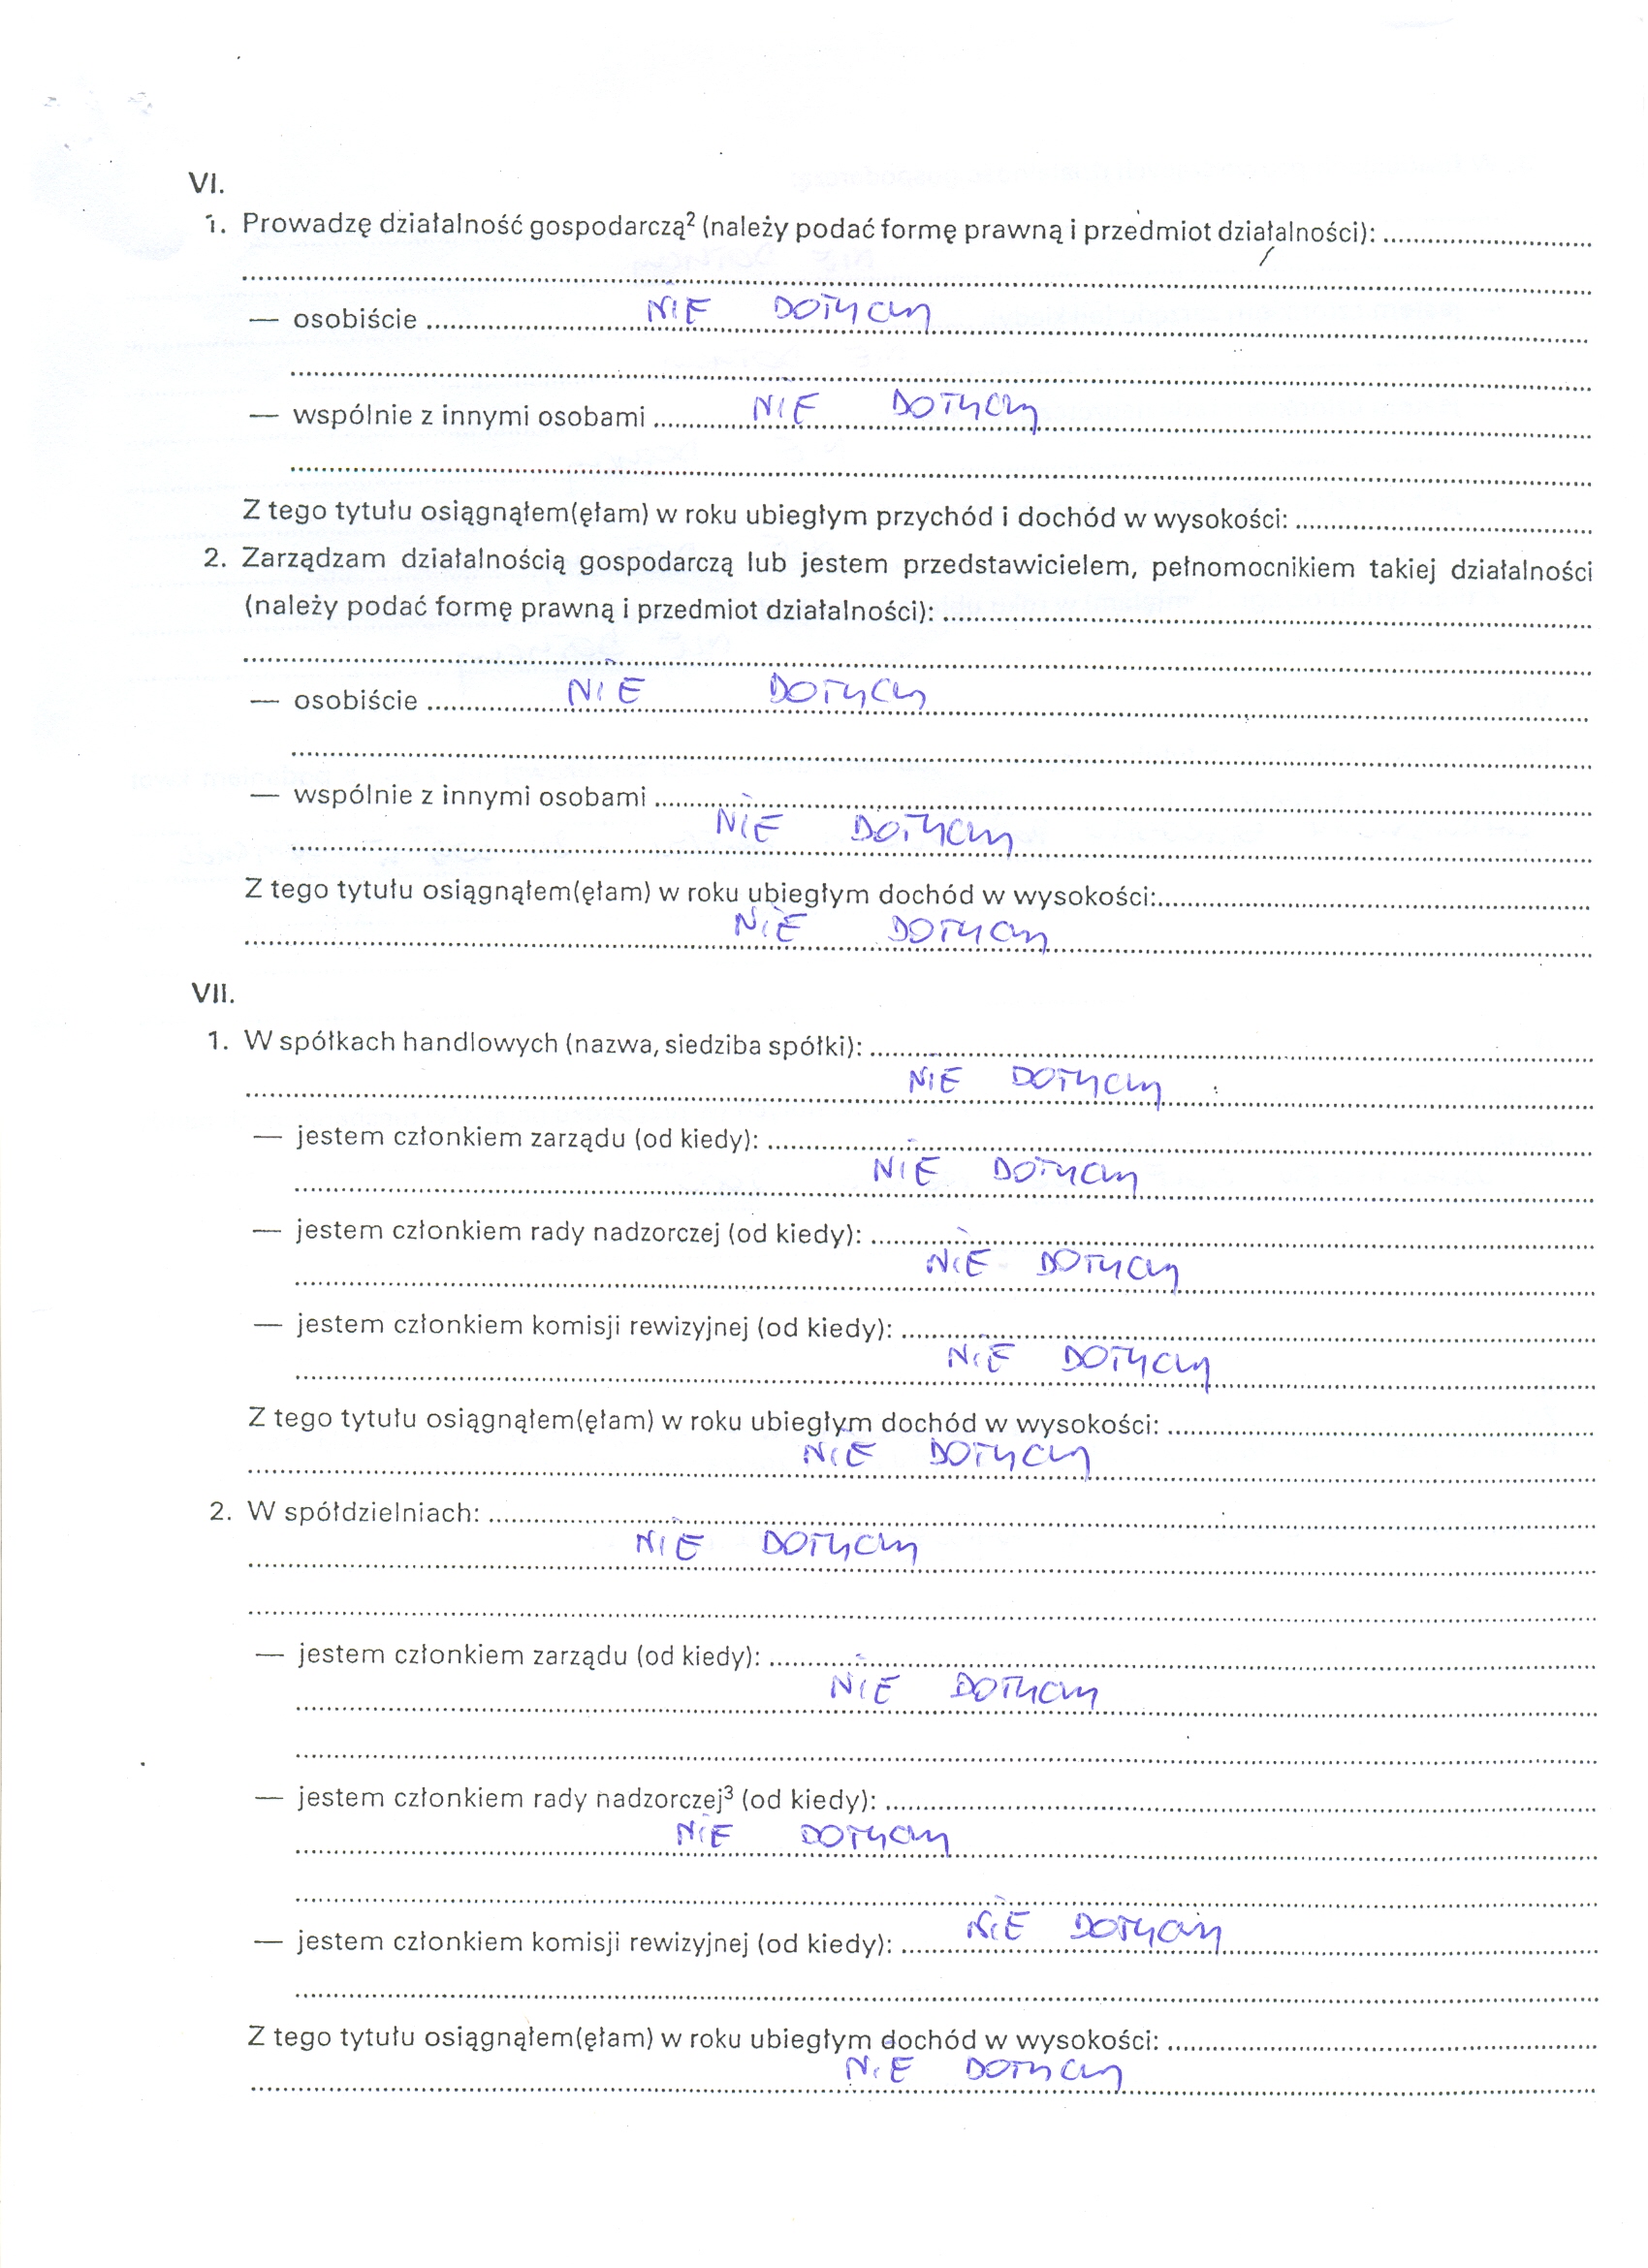 VI.
1. Prowadzę działalność gospodarczą² (należy podać formę prawną i przedmiot działalności):
— osobiście NIE DOTYCZY
— wspólnie z innymi osobami NIE DOTYCZY
Z tego tytułu osiągnąłem(ęłam) w roku ubiegłym przychód i dochód w wysokości:
2. Zarządzam działalnością gospodarczą lub jestem przedstawicielem, pełnomocnikiem takiej działalności
(należy podać formę prawną i przedmiot działalności):
— osobiście NIE DOTYCZY
— wspólnie z innymi osobami
NIE DOTYCZY
Z tego tytułu osiągnąłem(ęłam) w roku ubiegłym dochód w wysokości:
NIE DOTYCZY
VII.
1. W spółkach handlowych (nazwa, siedziba spółki):
NIE DOTYCZY
— jestem członkiem zarządu (od kiedy):
NIE DOTYCZY
— jestem członkiem rady nadzorczej (od kiedy):
NIE DOTYCZY
— jestem członkiem komisji rewizyjnej (od kiedy):
NIE DOTYCZY
Z tego tytułu osiągnąłem(ęłam) w roku ubiegłym dochód w wysokości:
NIE DOTYCZY
2. W spółdzielniach:
NIE DOTYCZY
— jestem członkiem zarządu (od kiedy):
NIE DOTYCZY
— jestem członkiem rady nadzorczej³ (od kiedy):
NIE DOTYCZY
— jestem członkiem komisji rewizyjnej (od kiedy): NIE DOTYCZY
Z tego tytułu osiągnąłem(ęłam) w roku ubiegłym dochód w wysokości:
NIE DOTYCZY